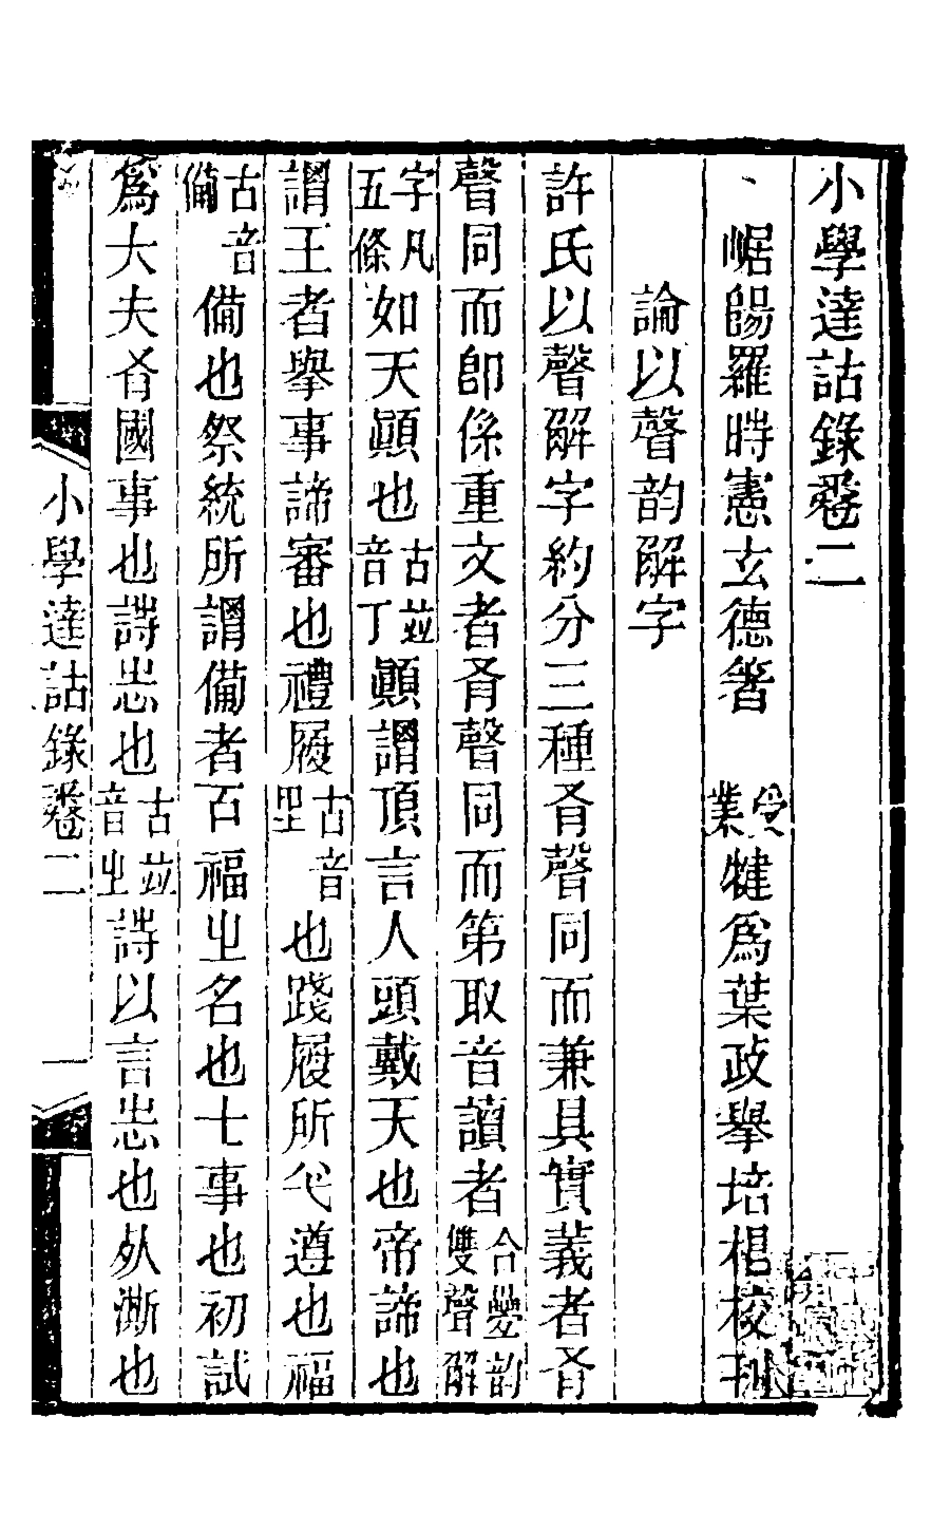 小學達詁錄卷二
崌陽羅時憲玄德箸 受業犍爲葉政舉培梠校刊
論以聲韵解字
許氏以聲解字約分三種肴聲同而兼具實義者肴
聲同而卽係重文者肴聲同而第取音讀者合疊韵雙聲解
字凡五條如天顚也古並音丁顚謂頂言人頭戴天也帝諦也
謂王者擧事諦審也禮履古音里也踐履所以遵也福
古音偪備也祭統所謂備者百福㞢名也士事也初試
爲大夫肴國事也詩志也古並音㞢詩以言志也㸚漸也
小學達詁錄卷二 一